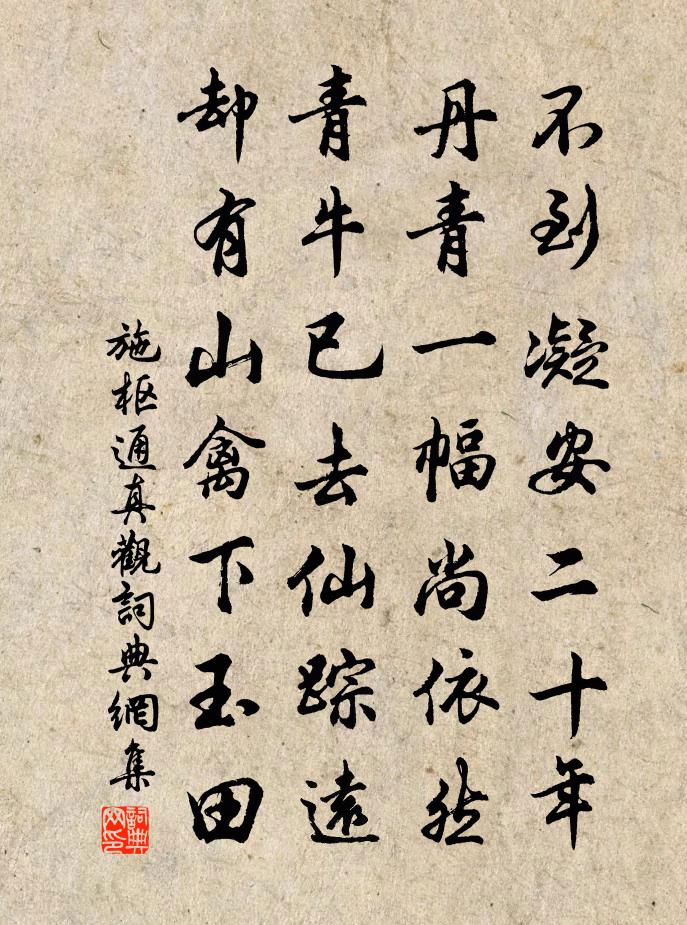 不到凝安二十年
丹青一幅尚依然
青牛已去仙踪遠
却有山禽下玉田
施枢通真觀詞典網集
詞典网印